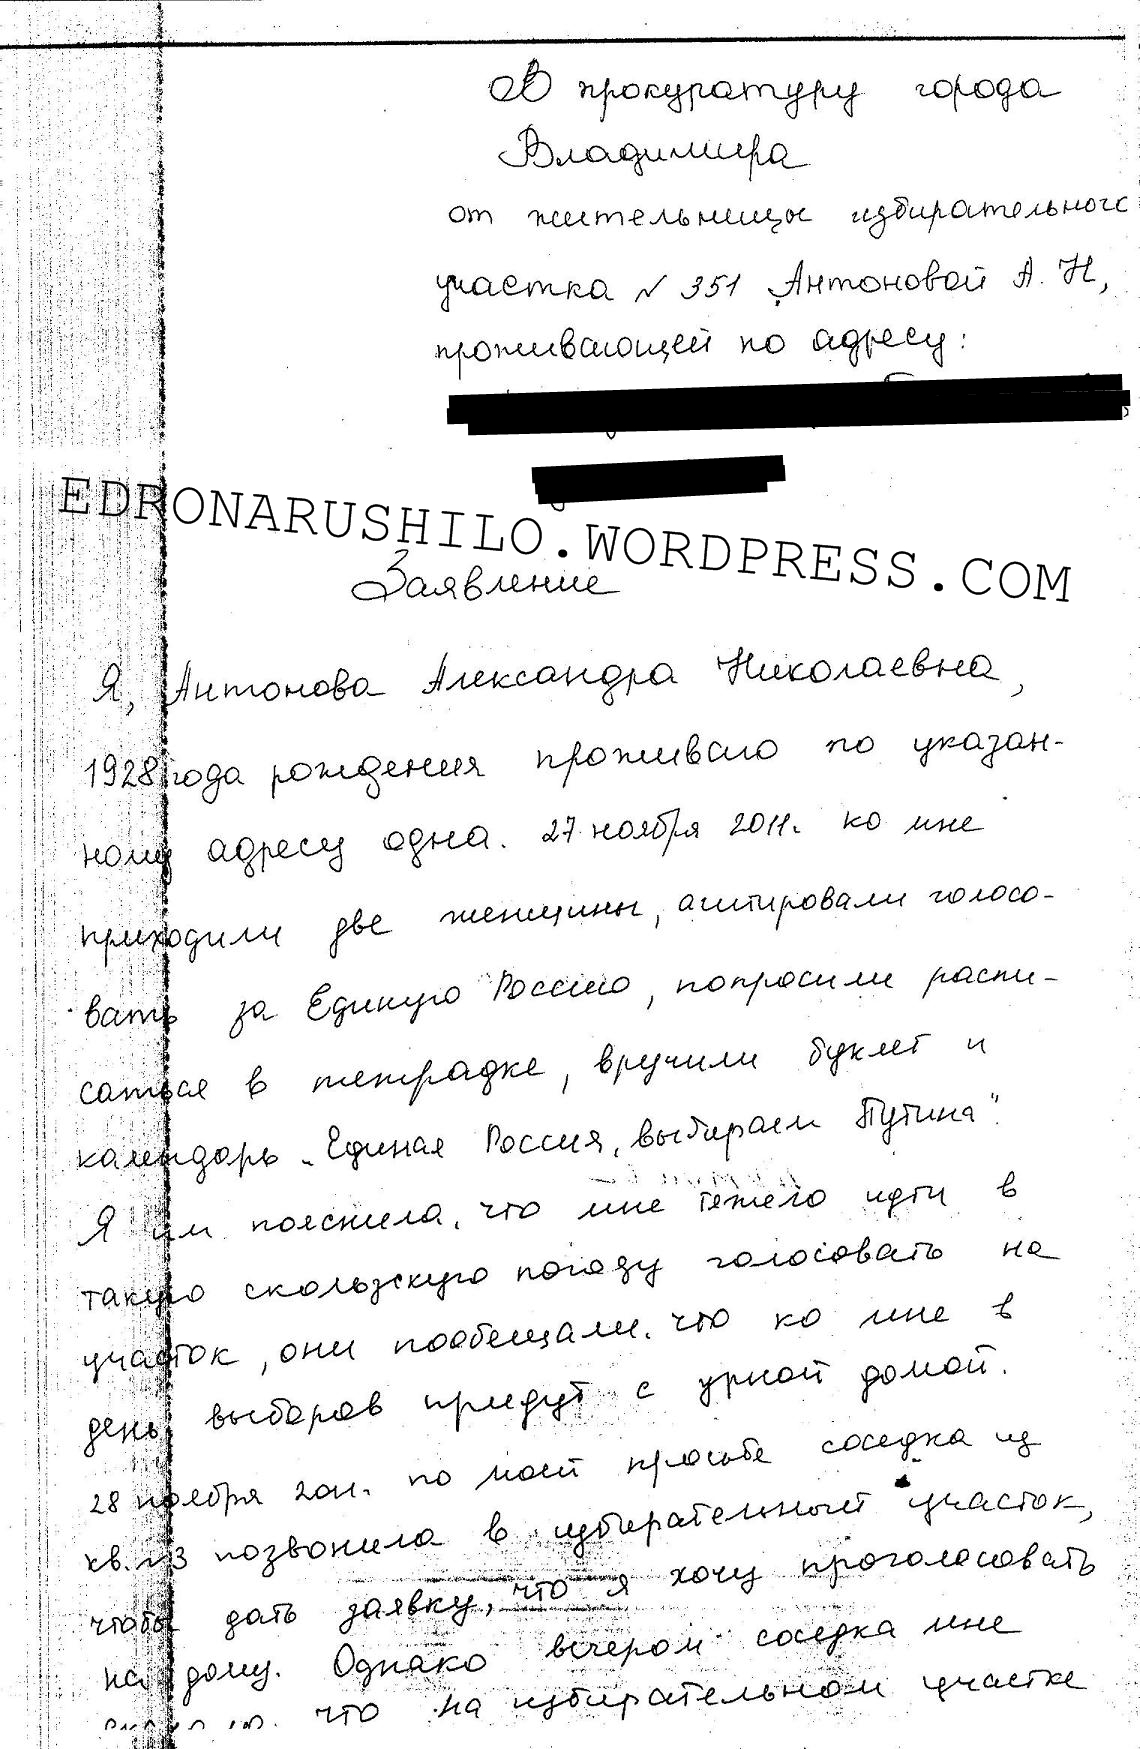 В прокуратуру города
Владимира
от жительницы избирательного
участка № 351 Антоновой А. Н,
проживающей по адресу:
EDRONARUSHILO.WORDPRESS.COM
Заявление
Я, Антонова Александра Николаевна,
1928 года рождения проживаю по указан-
ному адресу одна. 27 ноября 2011г. ко мне
приходили две женщины, агитировали голосо-
вать за Единую Россию, попросили распи-
саться в тетрадке, вручили буклет и
календарь „Единая Россия, выбираем Путина“.
Я им пояснила, что мне тяжело идти в
такую скользкую погоду голосовать на
участок, они пообещали, что ко мне в
день выборов придут с урной домой.
28 ноября 2011. по моей просьбе соседка из
кв. №3 позвонила в избирательный участок,
чтобы дать заявку, что я хочу проголосовать
на дому. Однако вечером соседка мне
что на избирательном участке